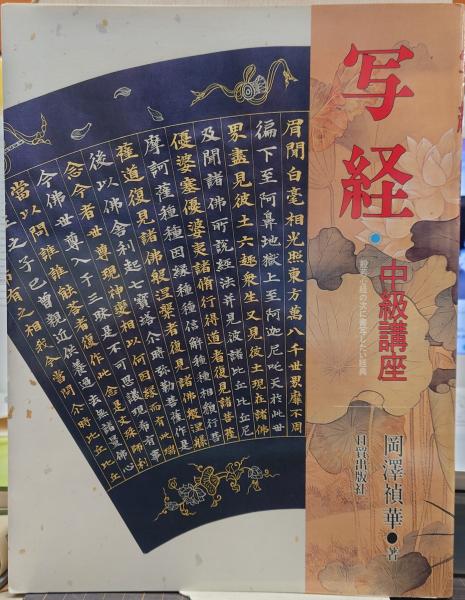 写経
・中級講座
般若心経の次に書写したい経典
岡澤禎華●著
日貿出版社
眉間白毫相光照東方萬八千世界靡不周
徧下至阿鼻地獄上至阿迦尼吒天於此世
界盡見彼土六趣衆生又見彼土現在諸佛
及聞諸佛所說經法并見彼諸比丘比丘尼
優婆塞優婆夷諸脩行得道者復見諸菩薩
摩訶薩種種因縁種種信解種種相貌行菩
薩道復見諸佛般涅槃者復見諸佛般涅槃
後以佛舍利起七寶塔尒時弥勒菩薩作是
念今者世尊現神變相以何因縁而有此瑞
今佛世尊入于三昧是不可思議現希有事
當以問誰誰能答者復作此念是文殊師利
之子已曾親近供養過去無量諸佛
有之相我今當問尒時比丘比丘